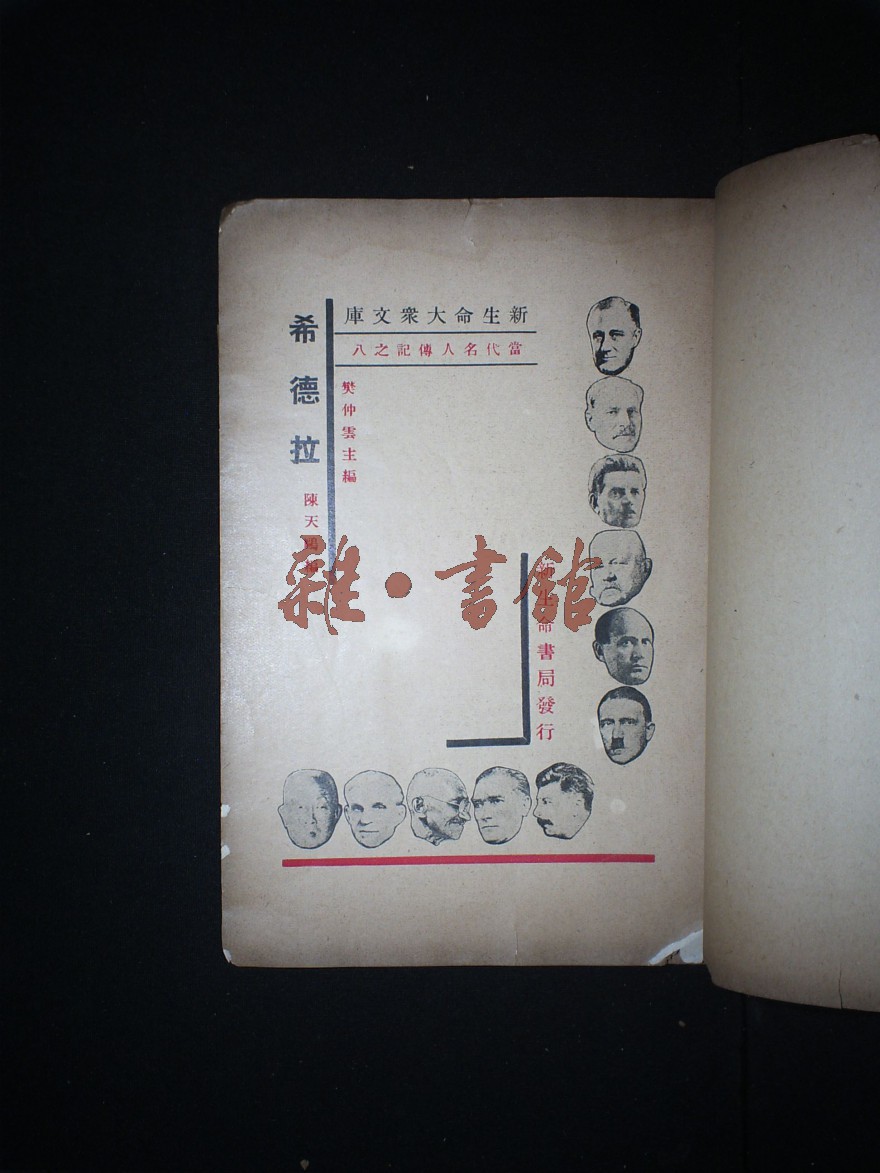 新生命大衆文庫
當代名人傳記之八
樊仲雲主編
希德拉
陳天
新生命書局發行
雜·書館